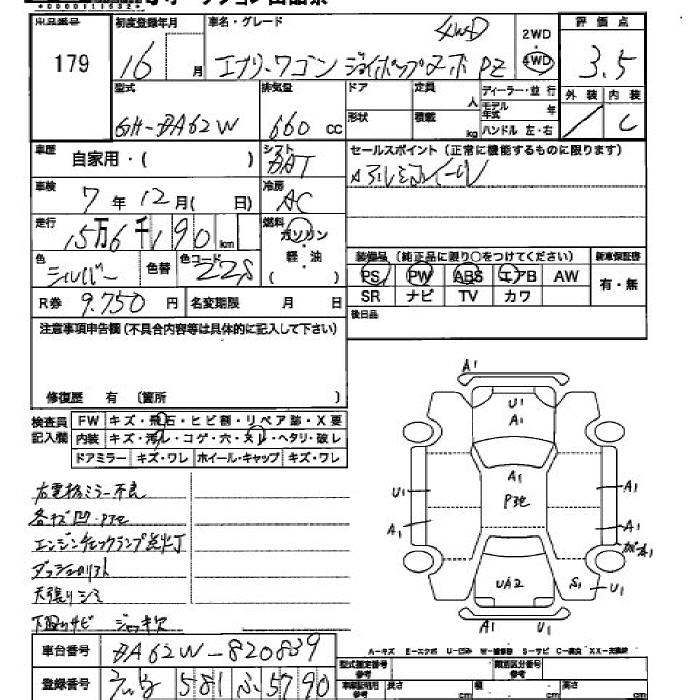 出品番号 初度登録年月 車名・グレード 4WD 2WD・4WD 評価点
179 16 月 エブリーワゴン ジョイポップターボ PZ 3.5
型式 排気量 ドア 定員 人 ディーラー・並行 外装 内装
GH-DA62W 660 cc 形状 積載 kg モデル年式 年 ハンドル 左・右 C
車歴 自家用・( ) シフト AT セールスポイント (正常に機能するものに限ります)
車検 7年12月( 日) 冷房 AC アルミホイール
走行 15万6千190km 燃料 ガソリン・軽油
色 シルバー 色替 色コード 22S 装備品 (純正品に限り○をつけてください) 新車保証書
PS PW ABS エアB AW 有・無
R券 9.750 円 名変期限 月 日 SR ナビ TV カワ
注意事項申告欄 (不具合内容等は具体的に記入して下さい) 後日品
修復歴 有 〔箇所 〕
検査員記入欄 FW キズ・飛石・ヒビ割・リペア跡・X要
内装 キズ・汚レ・コゲ・穴・スレ・ヘタリ・破レ
ドアミラー キズ・ワレ ホイール・キャップ キズ・ワレ
右電格ミラー不良
各キズ凹・P他
エンジンチェックランプ点灯
天張りシミ
下廻りサビ ジャッキ欠
A1
U1
A1
A1
P他
U1
A1
A1
A1
UA2
S1
U1
A1
U1
A-キズ E-エクボ U-凹み W-補修跡 S-サビ C-腐食 XX-交換跡
車台番号 DA62W-820839
型式指定番号 類別区分番号
登録番号 581 ふ 5790
長さ cm 幅 cm 高さ cm